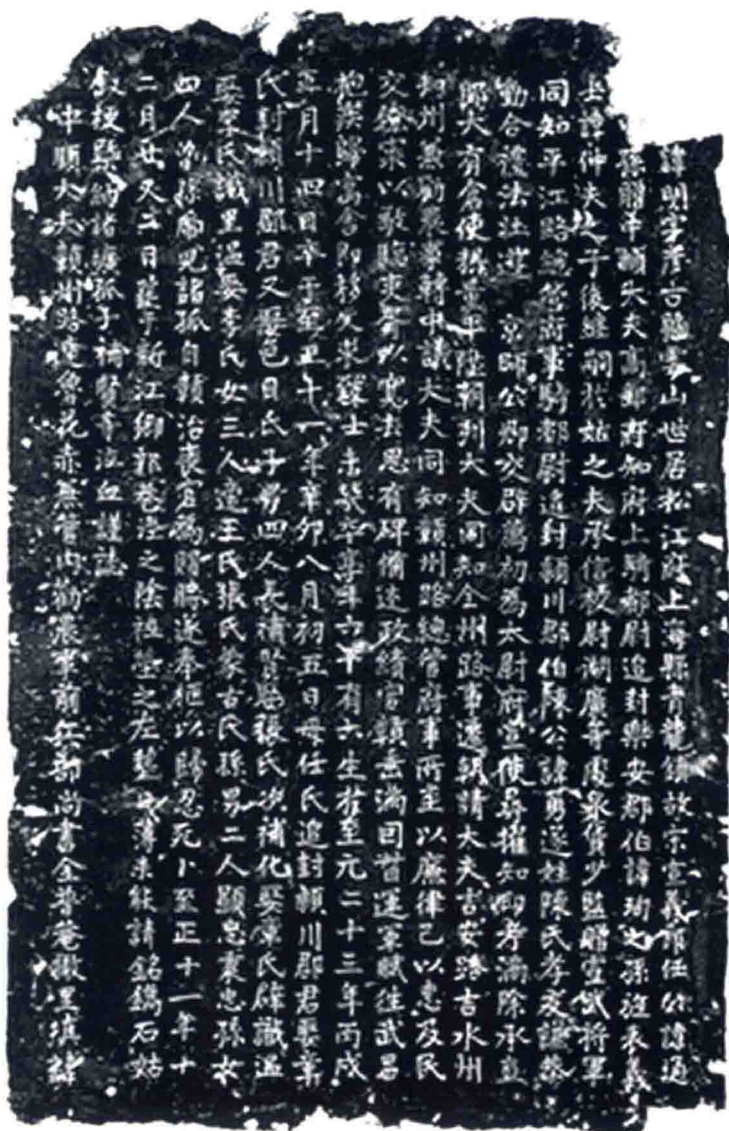 諱明字彦古號春山世居松江府上海縣青龍鎮故宗宣義郎任公諱通
孫贈中順大夫高郵府知府上騎都尉追封樂安郡伯諱珣之孫浙東義
士諱仲夫之子後繼嗣於姑之夫承信校尉湖廣等處泉貨少監贈宣武將軍
同知平江路總管府事騎都尉追封潁川郡伯陳公諱勇遂姓陳氏孝友謹恭
動合禮法壯遊 京師公卿交辟薦初為太尉府宣使尋擢知印考滿除承直
郎大有倉使平陞朝列大夫同知全州路事遷朝請大夫吉安路吉水州
知州兼勸農事轉中議大夫同知贛州路總管府事所至以廉律己以惠及民
交僚寀以敬馭吏胥以寬去思有碑備述政績官贛垂滿因督運軍賦往武昌
抱疾歸寓舍即移文求醫士未幾卒享年六十有六生於至元二十三年丙戌
五月十四日卒于至正十一年辛卯八月初五日母任氏追封潁川郡君娶章
氏封潁川郡君又娶色目氏子男四人長補賢娶張氏次補化娶康氏薜讖溫
娶李氏讖里溫娶李氏女三人適王氏張氏蒙古氏孫男二人顯忠秉忠孫女
四人孫尚兒諸孤自贛治喪官為賻賵遂奉柩以歸忍死卜至正十一年十
二月廿又二日葬于新江鄉郭巷涇之陰祖塋之左薄未能請銘鐫石姑
叙梗槩納諸壙孤子補賢等泣血謹誌
中順大夫贛州路達魯花赤兼管內勸農事前兵部尚書全普菴撒里填諱